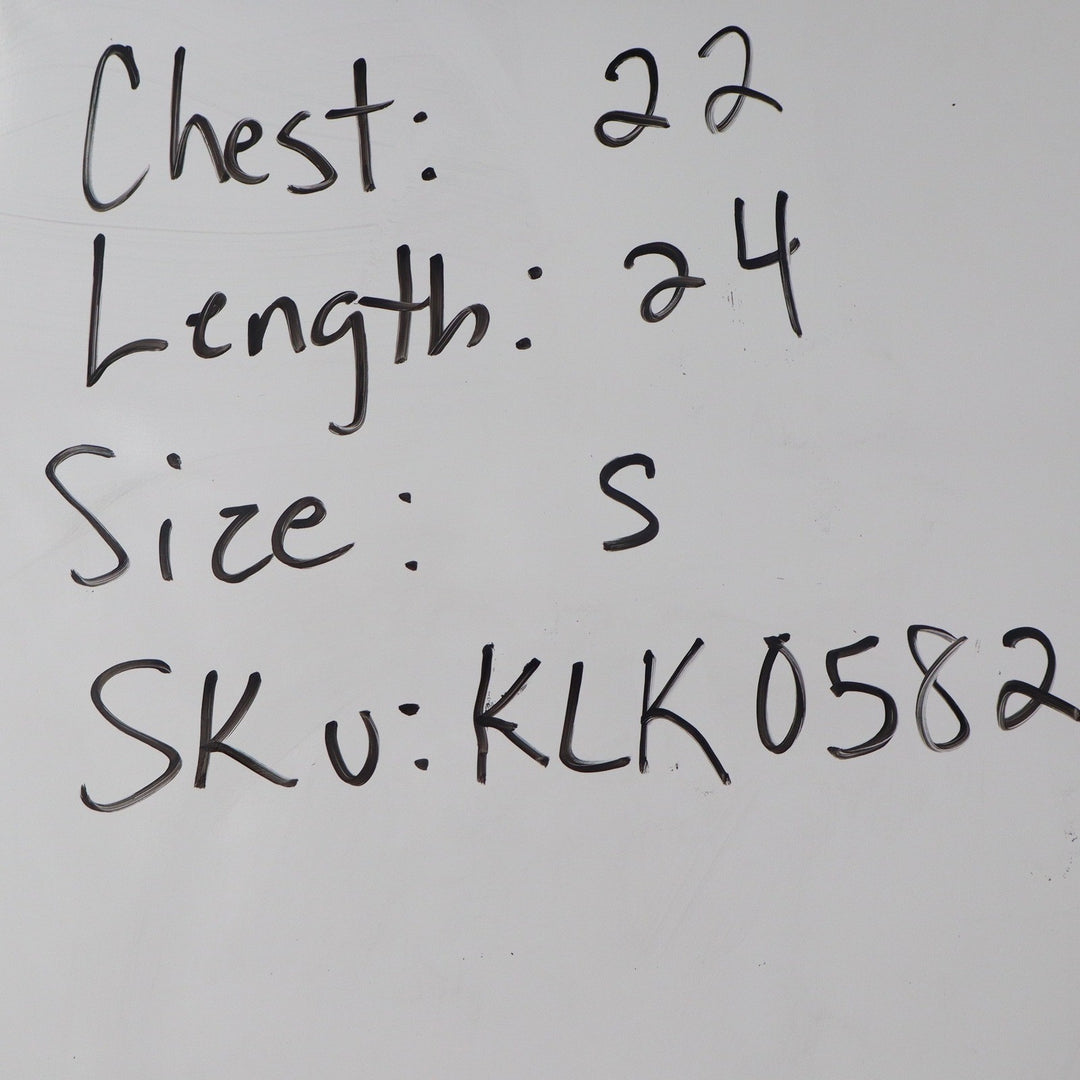 Chest: 22
Length: 24
Size: S
SKU: KLK0582